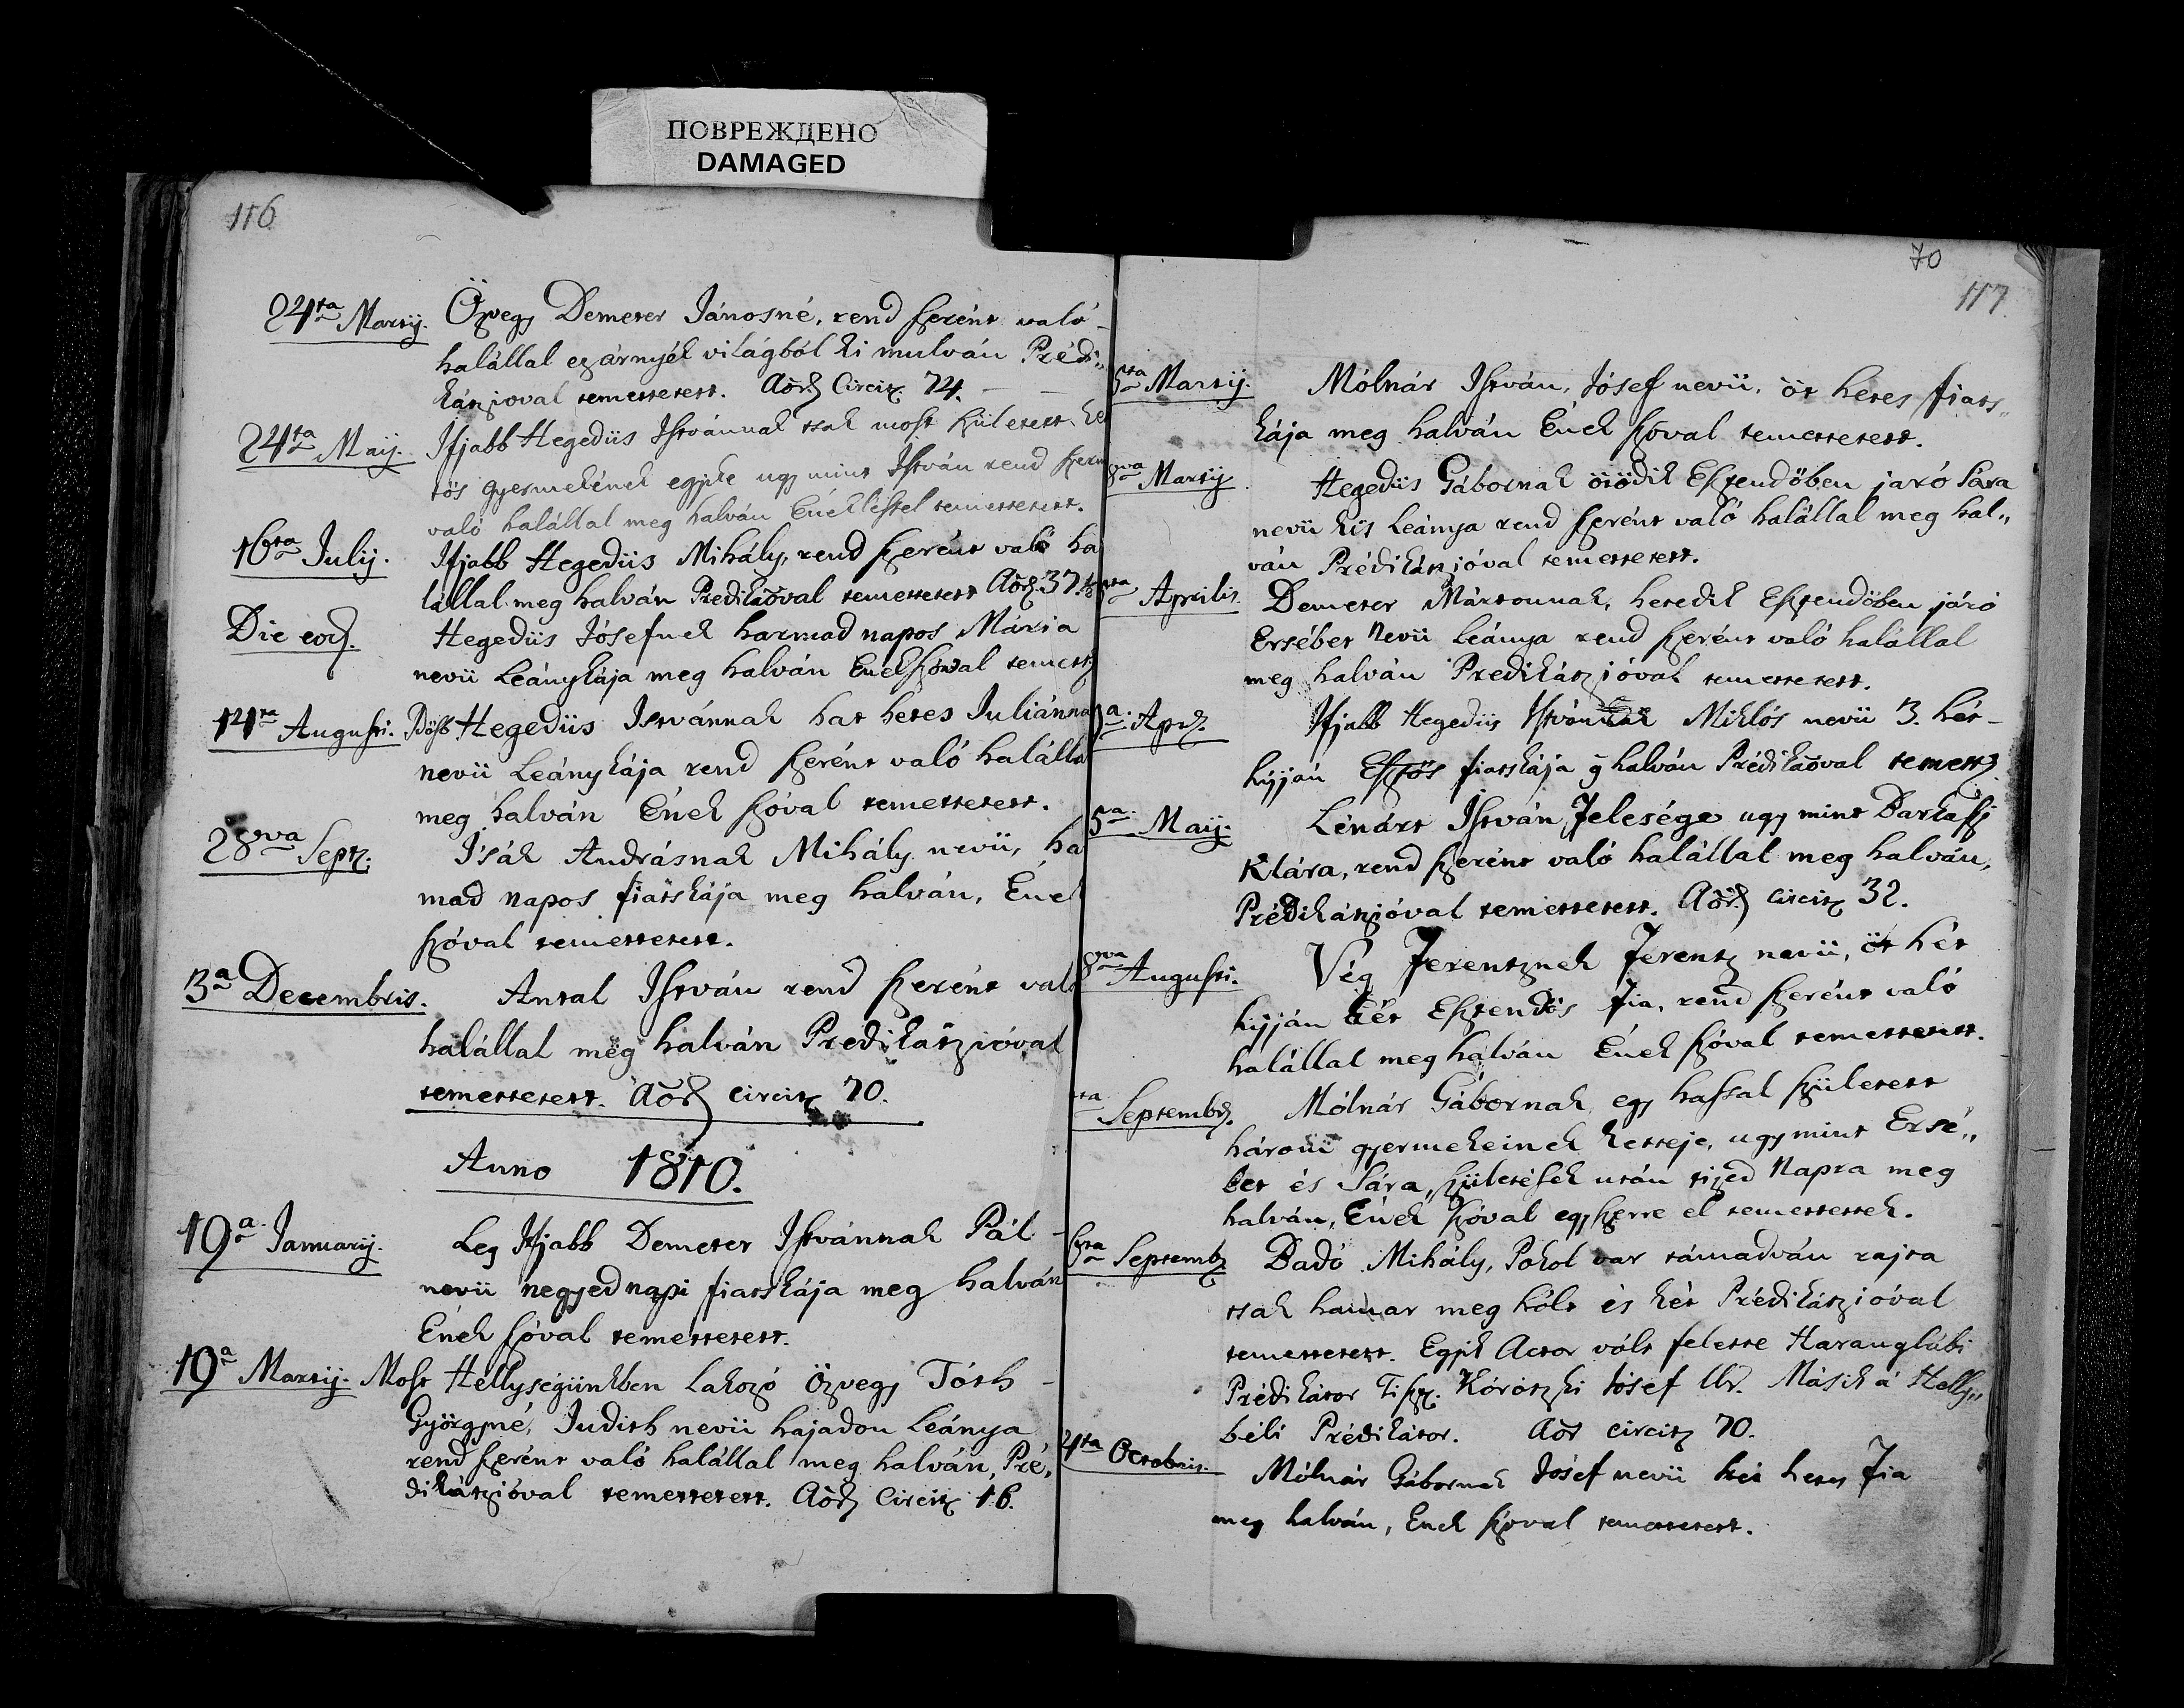 ПОВРЕЖДЕНО
DAMAGED
116
24ta Martij. Özvegy Demeter Jánosné, rend szerént való
halállal ez árnyék világból ki mulván Prédi„
kátzioval temettetett. Aõr. Circit. 74.
24ta Maij. Ifjabb Hegedüs Istvánnak tsak most született ket
tös gyermekének egyike ugy mint István rend szerint
való halállal meg halván Énekléssel temettetett.
16ta Julij. Ifjabb Hegedüs Mihály, rend szerént való ha
lállal meg halván Predikaõval temettetett Aõr. 37.
Die eod. Hegedüs Jósefnek harmad napos Mária
nevü Leánykája meg halván Enekszóval temett
14ta Augusti. Idösb Hegedüs Istvánnak hat hetes Juliánna
nevü Leánykája rend szerént való halálla
meg halván Ének szóval temettetett.
28va Sept. Isák Andrásnak Mihály nevü, ha
mad napos fiatskája meg halván, Ének
szóval temettetett.
3a Decembris. Antal István rend szerént való
halállal meg halván Predikátzióval
temettetett. Aõr. circit. 70.
Anno 1810.
19a Januarij. Leg Ifjabb Demeter Istvánnak Pál
nevü negyed napi fiatskája meg halván
Ének szóval temettetett.
19a Martij. Most Hellységünkben Lakozó Özvegy Tóth
Györgyné, Judith nevü hajadon Leánya
rend szerént való halállal meg halván, Pré„
dikátzióval temettetett. Aõr. Circit. 16.
70
117.
5ta Martij. Mólnár István, Jósef nevü, öt hetes fiats„
kája meg halván Ének szóval temettetett.
8va Martij Hegedüs Gábornak ötödik Esztendőben járó Sára
nevü kis Leánya rend szerént való halállal meg hal„
ván Prédikátzjóval temettetett.
Aprilis. Demeter Mártonnak, hetedik Esztendöben járó
Ersébet Nevü Leánya rend szerént való halállal
meg halván Predikátzjóval temettetett.
Apr. Ifjabb Hegedüs Istvánnak Miklós nevü 3. hét
hijján Esztös fiatskája g halván Prédikaõval temett.
5a Maij. Lénárt István Felesége ugy mint Bartafi
Klára, rend szerént való halállal meg halván,
Prédikátzjóval temettetett. Aõr. circit. 32.
8va Augusti. Vég Ferentznek Ferentz nevü, öt hét
hijján két Esztendös Fia, rend szerént való
halállal meg halván Ének szóval temettetett.
ta Septembr. Mólnár Gábornak egy hassal született
három gyermekeinek ketteje, ugymint Ersé„
bet és Sára, születések után tized Napra meg
halván, Ének szóval egyszerre el temettettek.
6ta Septemb. Dadó Mihály, Pokol var támadván rajta
tsak hamar meg hólt és két Prédikátzióval
temettetett. Egyik Actor vólt felette Haranglábi
Prédikátor Tisz. Kórótzki Jósef Ur. Másik á Helly„
béli Prédikátor. Aõr circit. 70.
4ta Octobris. Mólnár Gábornak Jósef nevü hét hetes Fia
meg halván, Enek szoval temettetett.